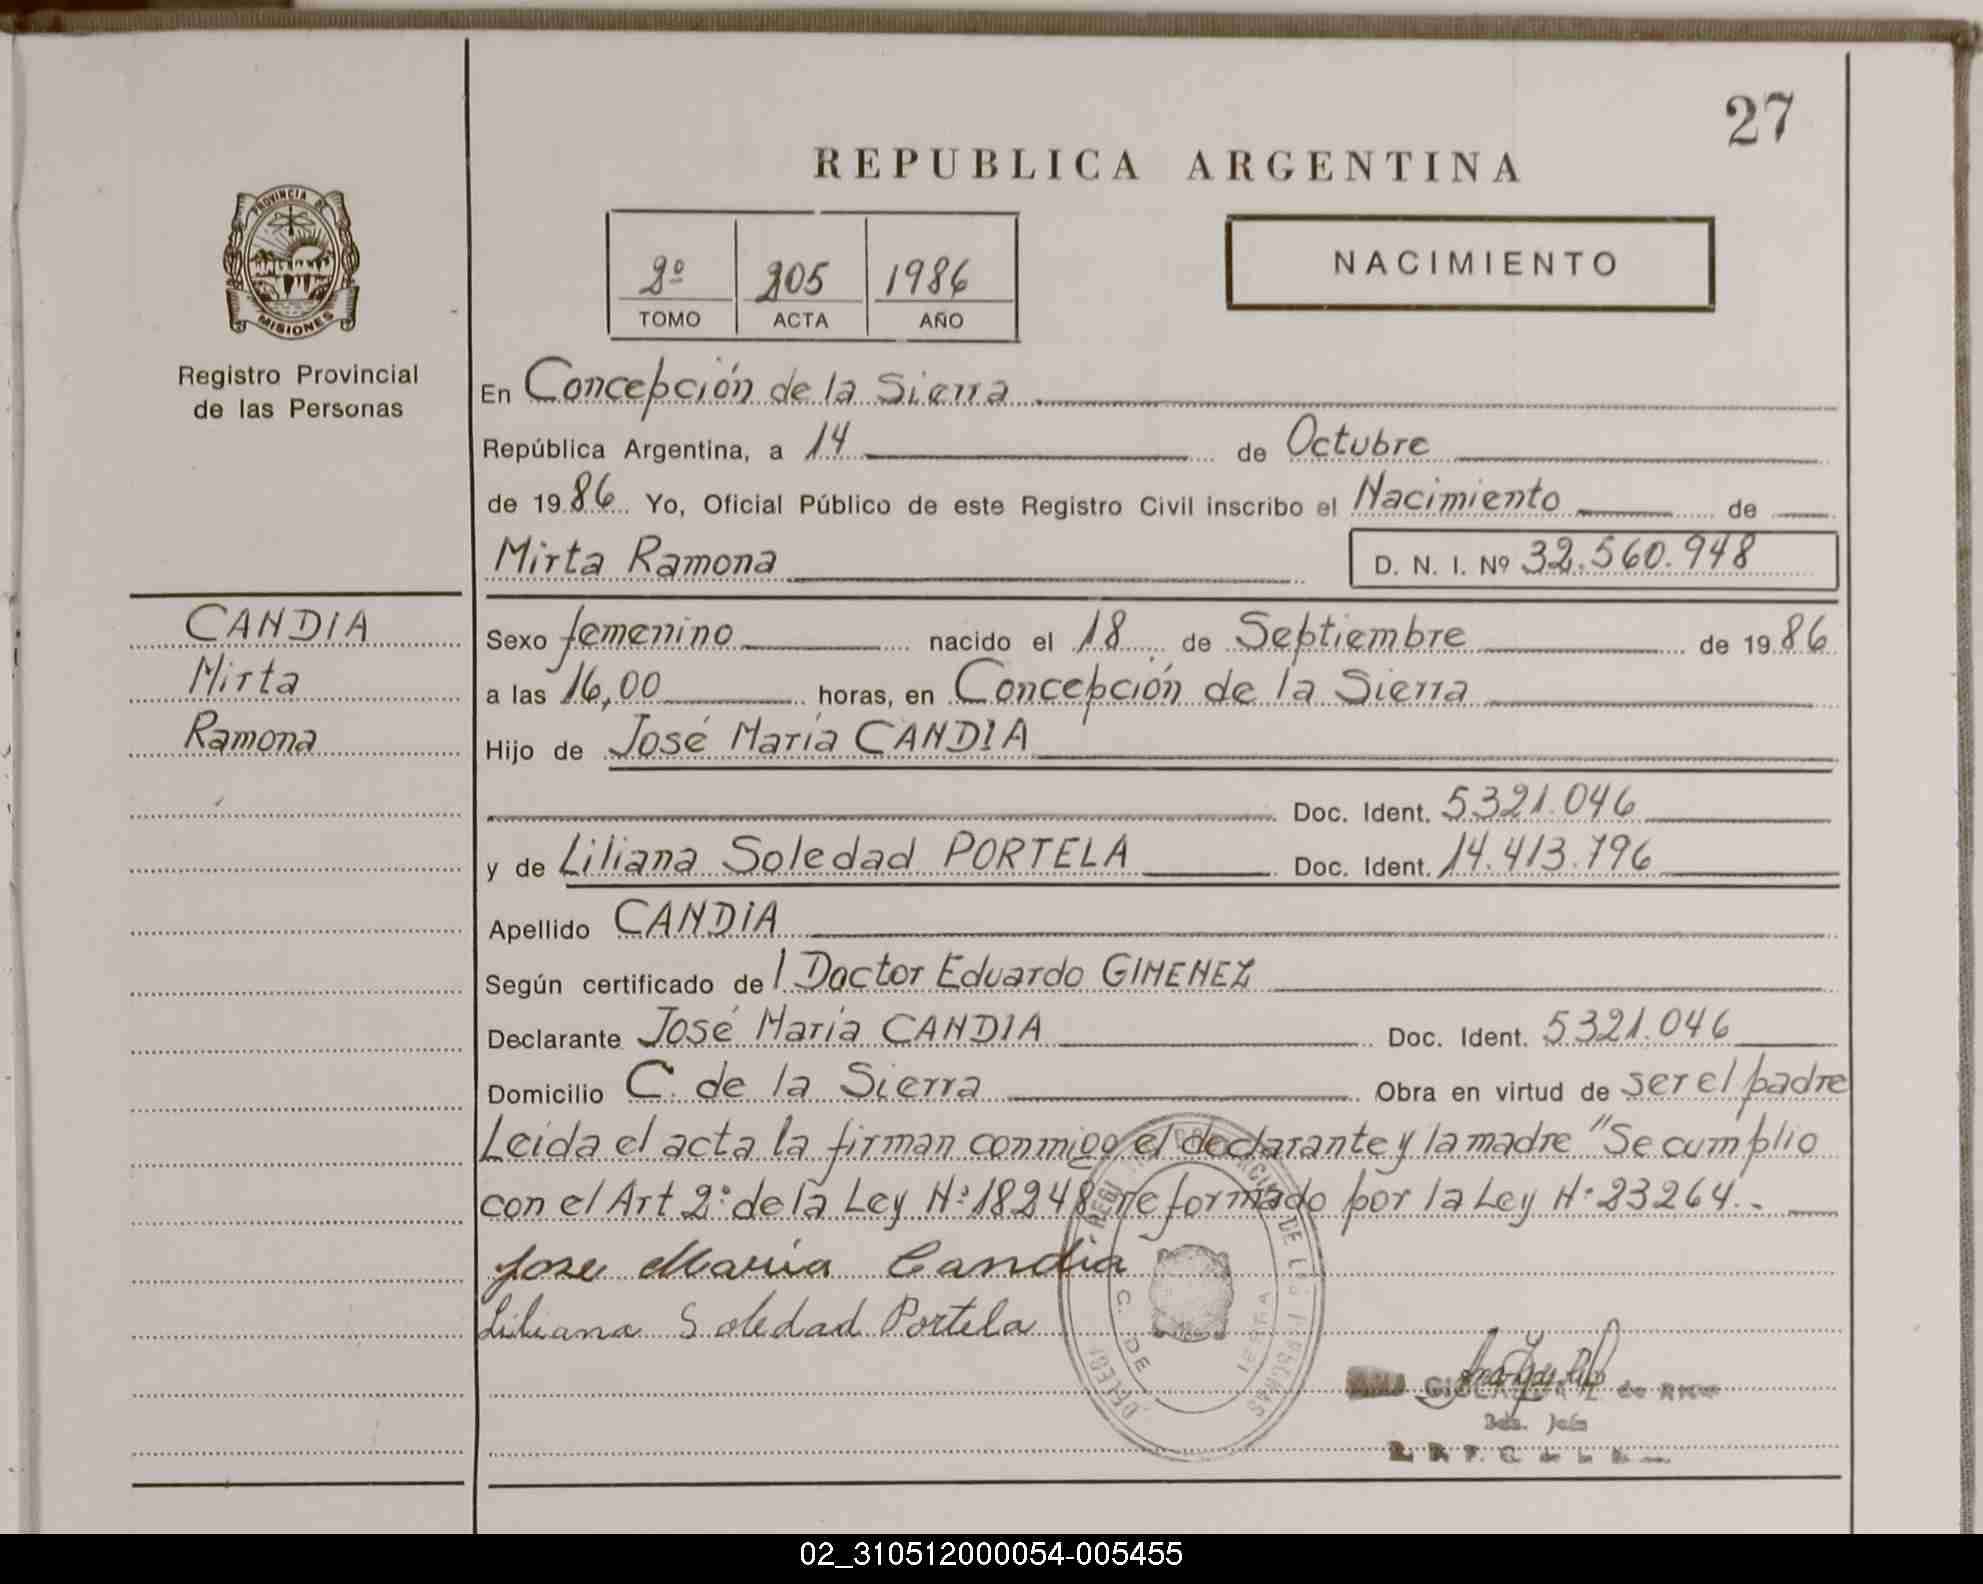 27
REPUBLICA ARGENTINA
PROVINCIA DE
MISIONES
Registro Provincial
de las Personas
2º 205 1986
TOMO ACTA AÑO
NACIMIENTO
En Concepción de la Sierra
República Argentina, a 14 de Octubre
de 1986 Yo, Oficial Público de este Registro Civil inscribo el Nacimiento de
Mirta Ramona D. N. I. Nº 32.560.948
CANDIA
Mirta
Ramona
Sexo femenino nacido el 18 de Septiembre de 1986
a las 16,00 horas, en Concepción de la Sierra
Hijo de José María CANDIA
Doc. Ident. 5321.046
y de Liliana Soledad PORTELA Doc. Ident. 14.413.796
Apellido CANDIA
Según certificado del Doctor Eduardo GIMENEZ
Declarante José María CANDIA Doc. Ident. 5321.046
Domicilio C. de la Sierra Obra en virtud de ser el padre
Leida el acta la firman conmigo el declarante y la madre "Se cumplio
con el Art 2º de la Ley Nº 18248 reformado por la Ley Nº 23264.-
Jose Maria Candia
Liliana Soledad Portela
C. DE
de
02_310512000054-005455